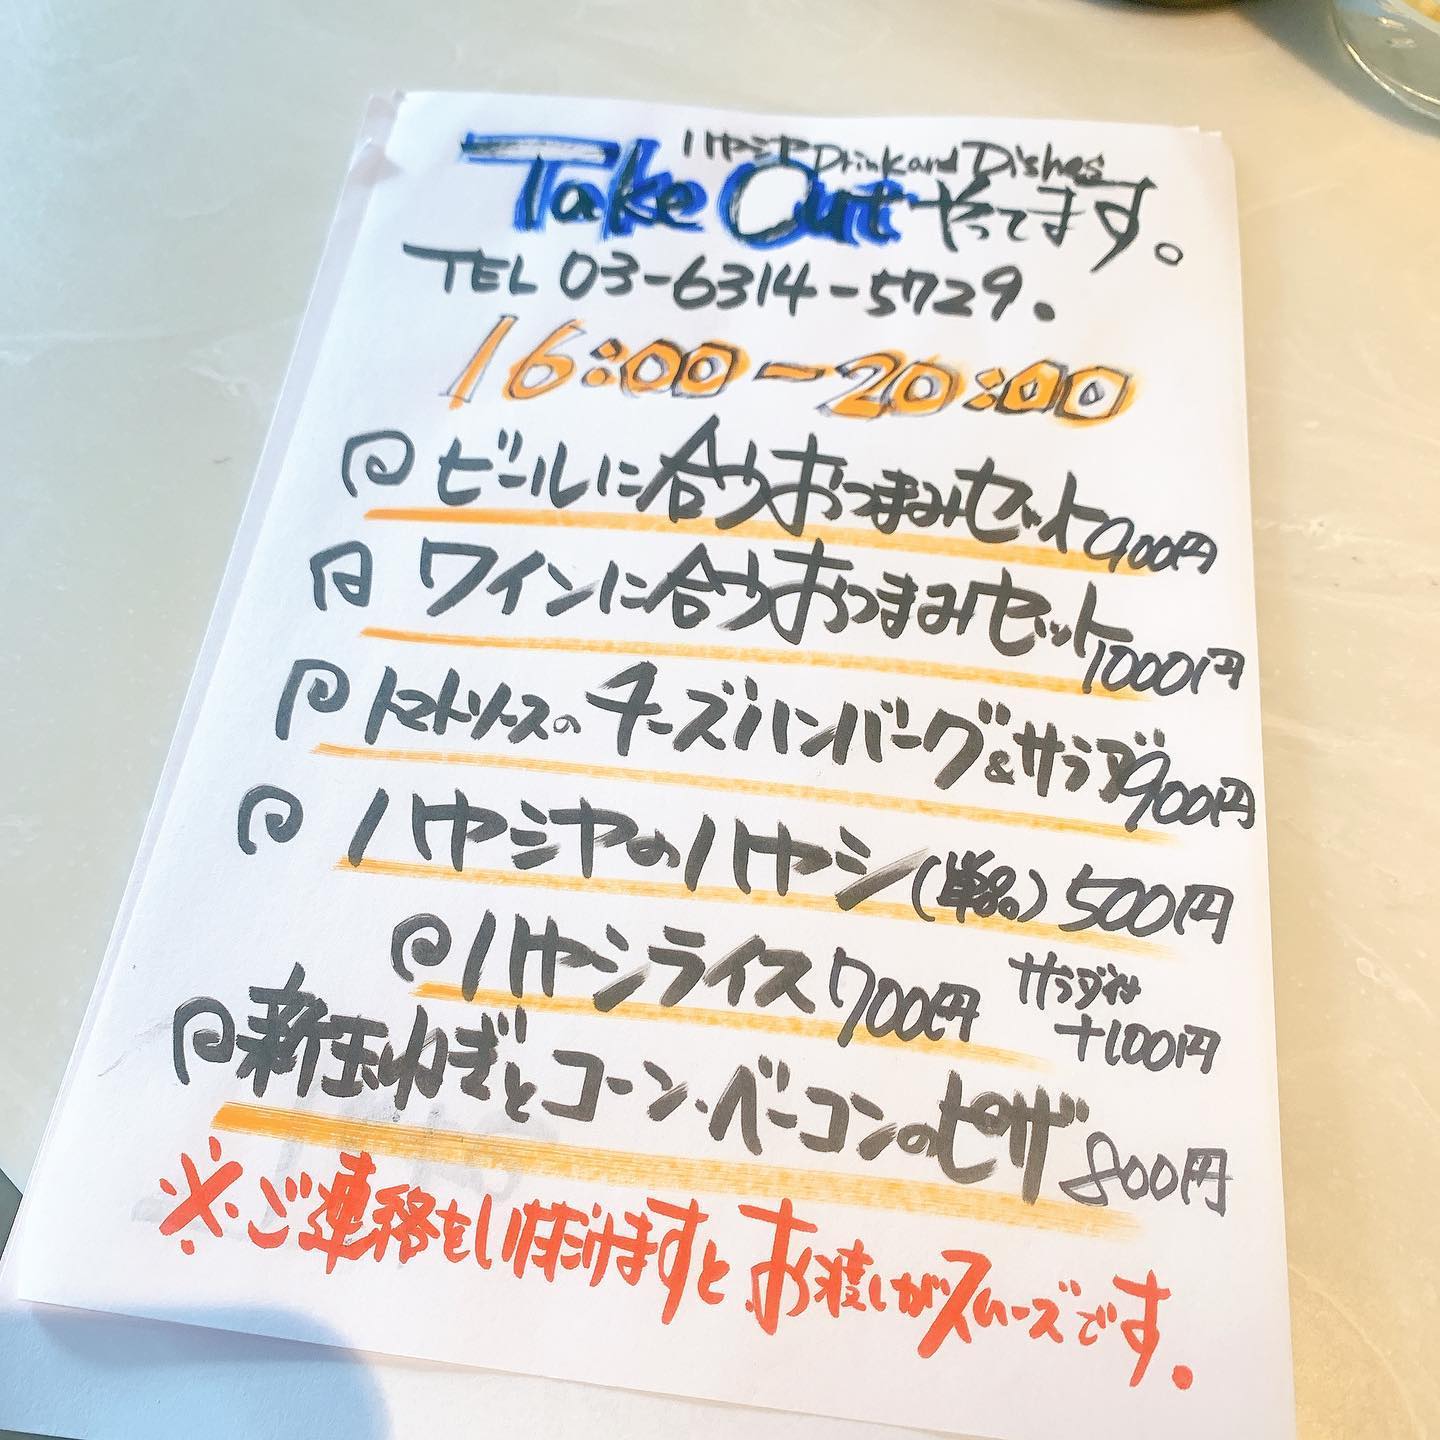 ハヤシヤ Drink and Dishes
Take Out やってます。
TEL 03-6314-5729.
16:00-20:00
ビールに合うおつまみセット 900円
ワインに合うおつまみセット 1000円
トマトソースのチーズハンバーグ&サラダ 900円
ハヤシヤのハヤシ(単品) 500円
ハヤシライス 700円 サラダ付 +100円
新玉ねぎとコーン・ベーコンのピザ 800円
※ご連絡をいただけますとお渡しがスムーズです.